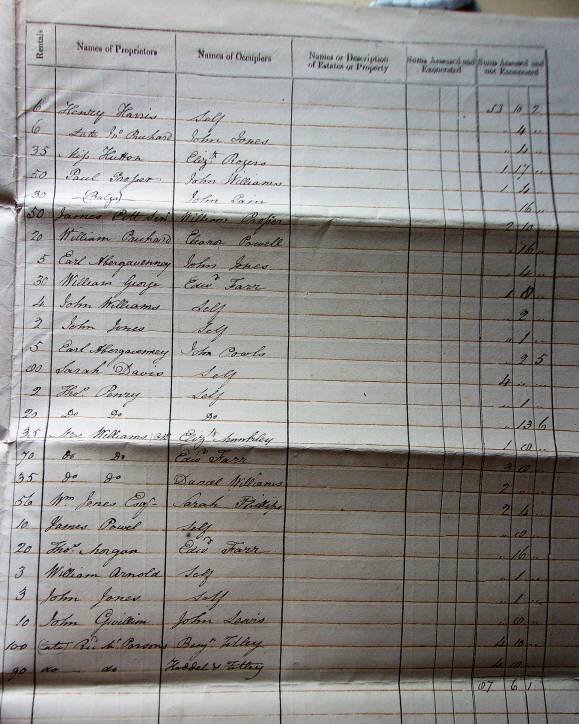 Rentals Names of Proprietors Names of Occupiers Names or Description of Estates or Property Sums Assessed and Exonerated Sums Assessed and not Exonerated
53 10 2
6 Henry Harris Self " 4 "
6 Late Jnº Prichard John Jones " 4
35 Kip Hutton Elizth Rogers 1 17 "
50 Paul Prosper John Williams 1 4
30 John Pain " 16 "
50 James Senr William 2 10
20 William Prichard Eleanor Powell " 16 "
5 Earl Abergavenney John Jones " 4 "
30 William George Edwd Farr 1 "
4 John Williams Self " 2 "
2 John Jones Self " 1 "
5 Earl Abergavenney John Powls " 2 5
Sarah Davis Self 4 " "
2 Thos Penry Self " 1 "
20 Do Do Do " 13 6
35 Mrs Williams Elizth 1
70 Do Do Edwd Farr 3
35 do do Daniel Williams 2 "
56 Wm Jones Esqr Sarah Phillips 2 4
10 James Powel Self
20 Thos Morgan Edwd Farr " 16
3 William Arnold Self " 1 "
3 John Jones Self " 1 "
10 John Gwillim John Lewis
100 (late) Parsons Benjn Tilley 4 10 "
90 do do 4
67 6 1